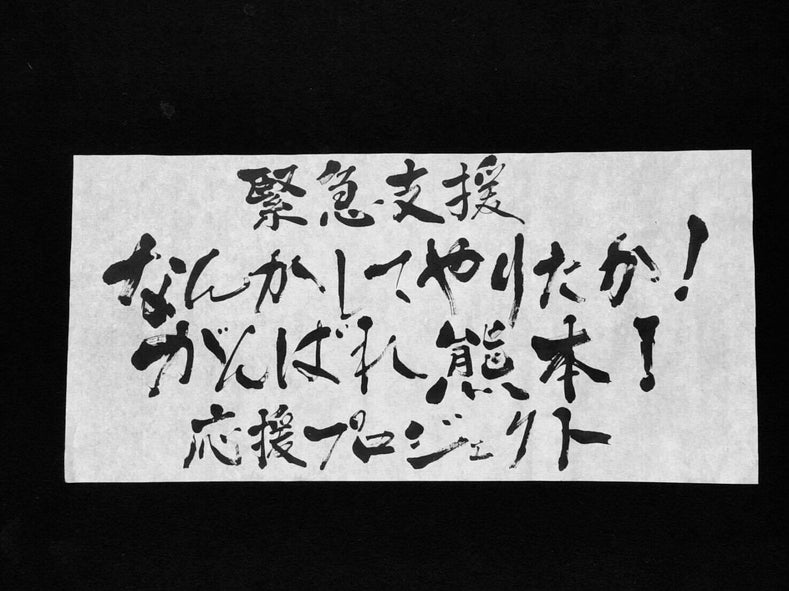 緊急支援
なんかしてやりたか!
がんばれ熊本!
応援プロジェクト